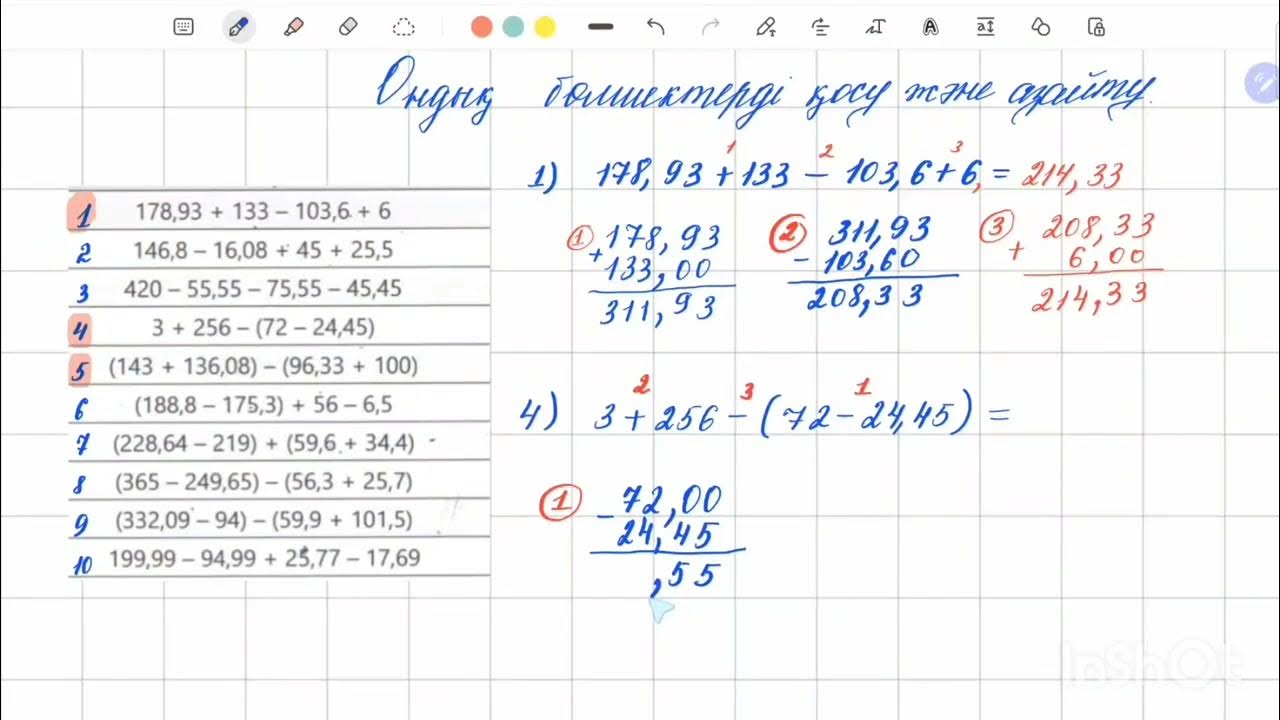 Ондық бөлшектерді қосу және азайту.
1 178,93 + 133 – 103,6 + 6
2 146,8 – 16,08 + 45 + 25,5
3 420 – 55,55 – 75,55 – 45,45
4 3 + 256 – (72 – 24,45)
5 (143 + 136,08) – (96,33 + 100)
6 (188,8 – 175,3) + 56 – 6,5
7 (228,64 – 219) + (59,6 + 34,4)
8 (365 – 249,65) – (56,3 + 25,7)
9 (332,09 – 94) – (59,9 + 101,5)
10 199,99 – 94,99 + 25,77 – 17,69
1 2 3
1) 178,93 + 133 – 103,6 + 6, = 214,33
1 178,93
+ 133,00
311,93
2 311,93
– 103,60
208,33
3 208,33
+ 6,00
214,33
2 3 1
4) 3 + 256 – (72 – 24,45) =
1 72,00
– 24,45
,55
InShOt